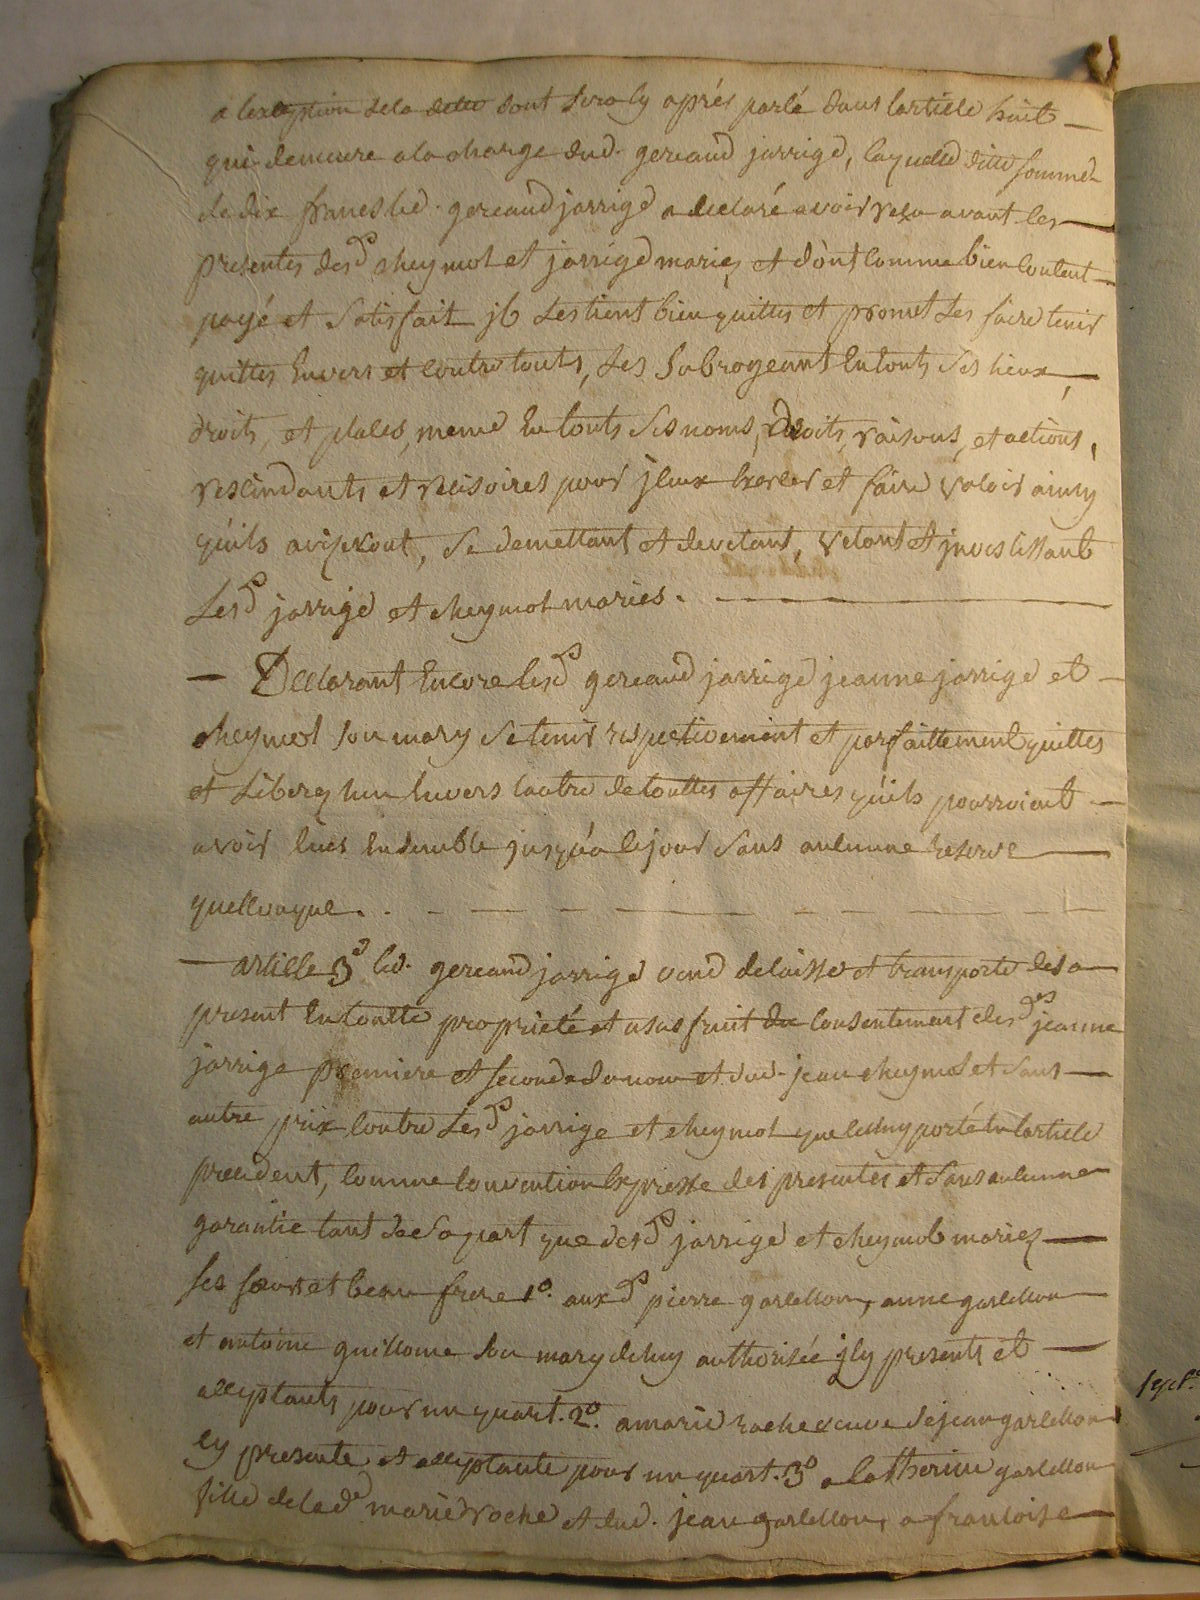 a lexeption de la dette dont sera cy aprés parlé dans larticle huit
qui demeure a la charge dud. gereaud jarrige, laquelle ditte somme
de dix francs led. gereaud jarrige a declaré avoir resu avant les
presentes desd.s cheymol et jarrige mariez et dont comme bien content
payé et satisfait jl les tient bien quittes et promet les faire tenir
quittes envers et contre touts, les subrogeant en touts ses lieux,
droits, et places, meme en touts ses noms, droits, raisons, et actions,
rescindants et rescisoires pour jceux exercer et faire valoir ainsy
qu'ils aviseront, se demettant et devetant, vetant et jnvestissant
lesd.s jarrige et cheymol maries.
Declarant encore lesd.s gereaud jarrige jeanne jarrige et
cheymol son mary se tenir respectivement et parfaittement quittes
et liberez lun envers lautre de touttes affaires qu'ils pourroient
avoir eues ensemble jusqu'a ce jour sans aucunne reserve
quelconque.
article 3e led. gereaud jarrige vend delaisse et transporte des a
present en toutte proprieté et usufruit du consentement desd.es jeanne
jarrige premiere et seconde du nom et dud. jean cheymol et sans
autre prix contre lesd.s jarrige et cheymol que celuy porté en larticle
precedent, comme convention expresse des presentes et sans aucunne
garantie tant de sa part que desd.s jarrige et cheymol mariez
ses soeur et beau frere 1o. auxd.s pierre garcellon, anne garcellon
et antoine guillome son mary deluy authorisée jcy presents et
acceptants pour un quart. 2o. a marie roche veuve de jean garcellon
cy presente et acceptante pour un quart. 3o a catherine garcellon
fille de lad.e marie roche et dud. jean garcellon, a francoise